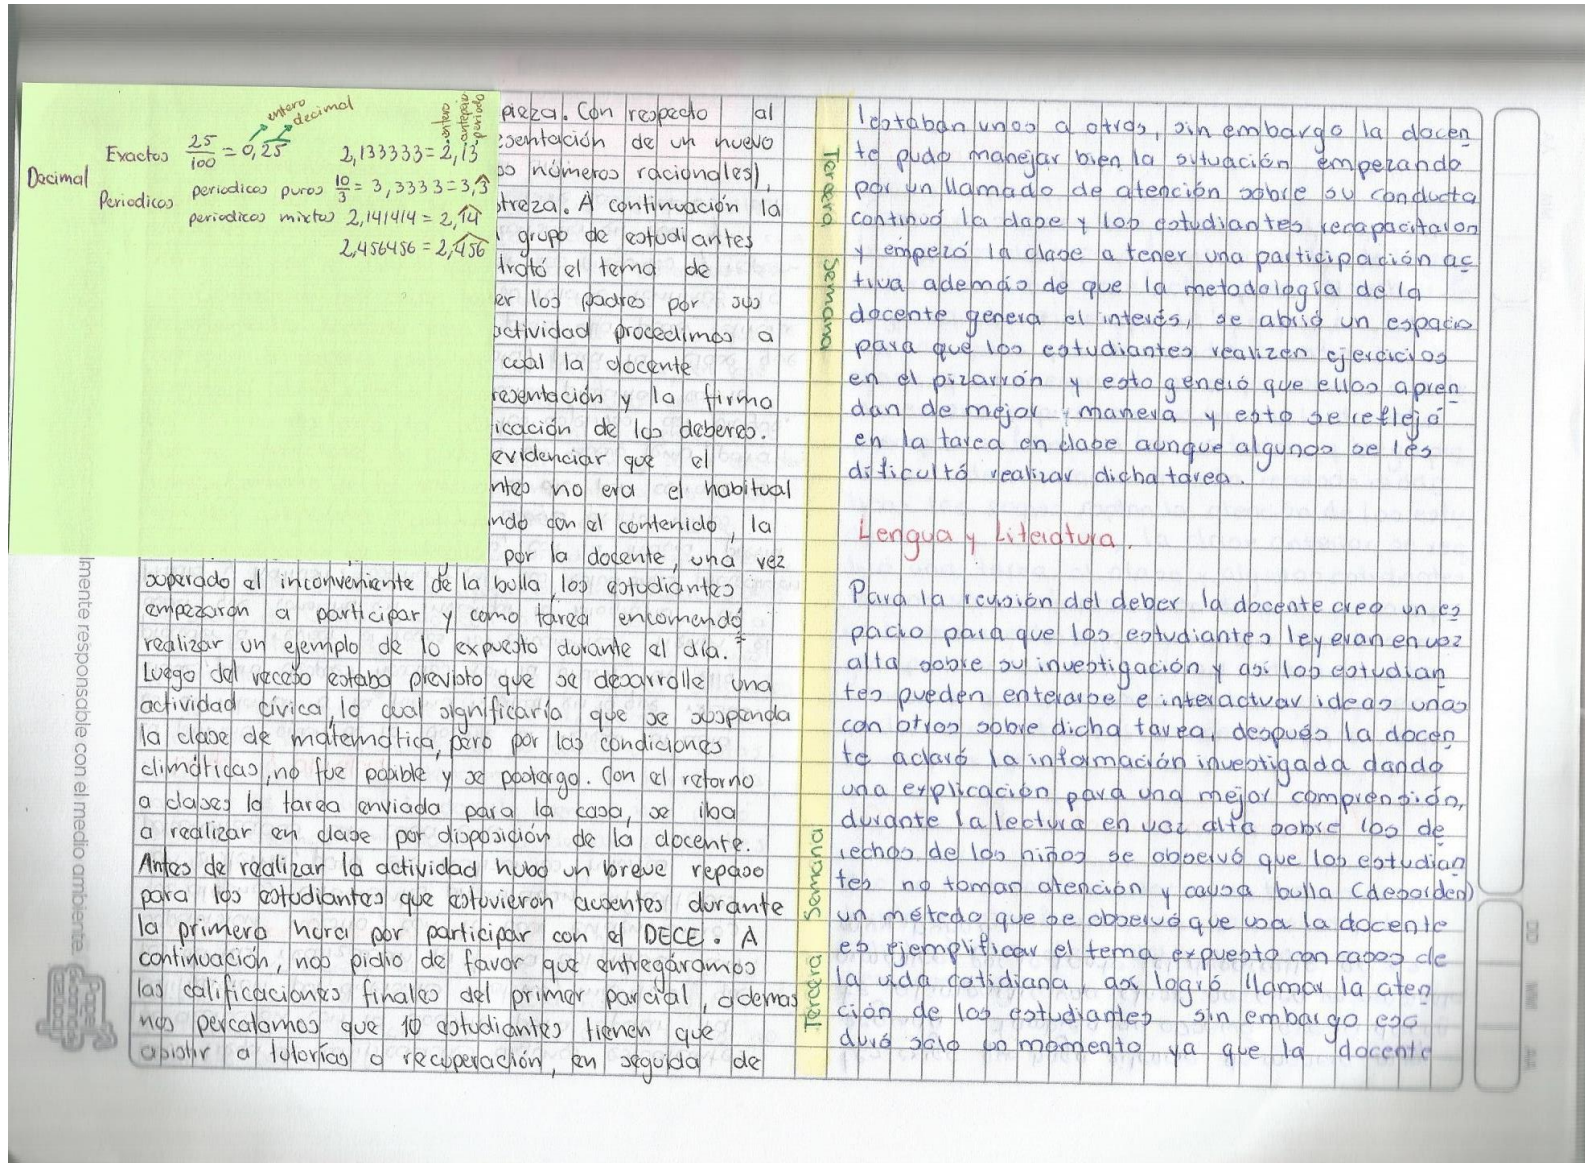 entero
decimal
Exactos 25/100 = 0,25
2,133333 = 2,13
Decimal
Periodicos periodicos puros 10/3 = 3,3333 = 3,3
periodicos mixtos 2,141414 = 2,14
2,456456 = 2,456
pieza. Con respecto al
esentación de un nuevo
os números racionales),
streza. A continuación la
grupo de estudiantes
trató el tema de
er los padres por sus
actividad procedimos a
cual la docente
resentación y la firma
icación de los deberes.
evidenciar que el
ntes no era el habitual
ndo con el contenido, la
por la docente, una vez
superado el inconveniente de la bulla, los estudiantes
empezaron a participar y como tarea encomendó
realizar un ejemplo de lo expuesto durante el día.
Luego del receso estaba previsto que se desarrolle una
actividad cívica, lo cual significaría que se suspenda
la clase de matemática, pero por las condiciones
climáticas, no fue posible y se postergo. Con el retorno
a clases la tarea enviada para la casa, se iba
a realizar en clase por disposición de la docente.
Antes de realizar la actividad hubo un breve repaso
para los estudiantes que estuvieron ausentes durante
la primera hora por participar con el DECE. A
continuación, nos pidio de favor que entregáramos
las calificaciones finales del primer parcial, ademas
nos percatamos que 10 estudiantes tienen que
asistir a tutorías o recuperación, en seguida de
Tercera Semana
Tercera Semana
lestaban unos a otros, sin embargo la docen
te pudo manejar bien la situación empezando
por un llamado de atención sobre su conducta
continuó la clase y los estudiantes recapacitaron
y empezó la clase a tener una participación ac
tiva además de que la metodología de la
docente genera el interés, se abrió un espacio
para que los estudiantes realizen ejercicios
en el pizarrón y esto generó que ellos apren
dan de mejor manera y esto se reflejó
en la tarea en clase aunque algunos se les
dificultó realizar dicha tarea.
Lengua y Literatura.
Para la revisión del deber la docente creo un es
pacio para que los estudiantes leyeran en voz
alta sobre su investigación y así los estudian
tes pueden enterarse e interactuar ideas unas
con otros sobre dicha tarea, después la docen
te aclaró la información investigada dando
una explicación para una mejor comprensión,
durante la lectura en voz alta sobre los de
rechos de los niños se observó que los estudian
tes no toman atención y causa bulla (desorden)
un método que se observó que usa la docente
es ejemplificar el tema expuesto con casos de
la vida cotidiana, así logró llamar la aten
ción de los estudiantes sin embargo eso
duró solo un momento ya que la docente
lmente responsable con el medio ambiente.